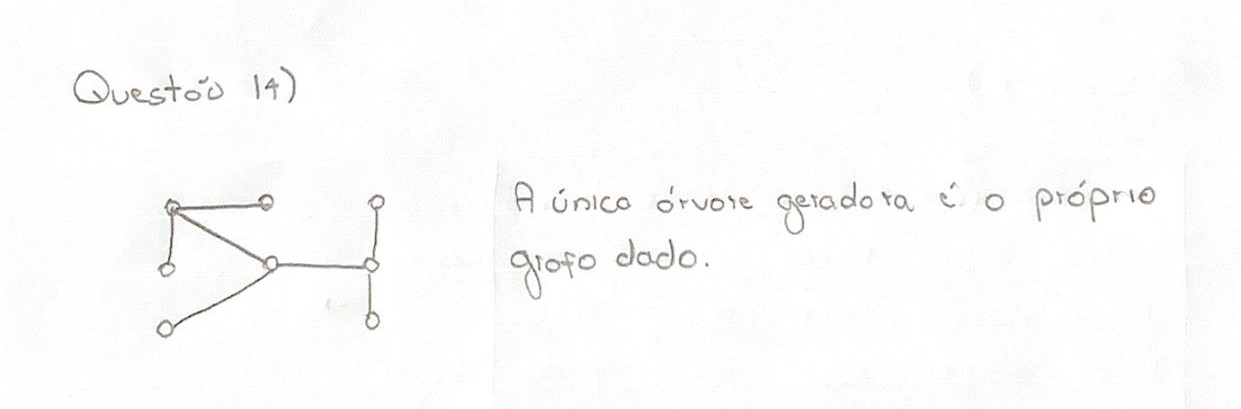 Questão 14)
A única árvore geradora é o próprio
grafo dado.